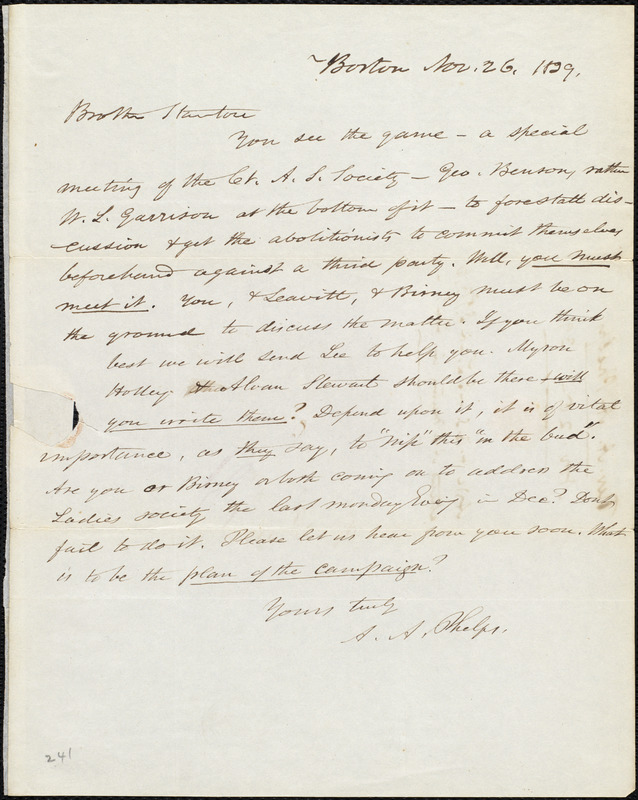 Boston Nov. 26. 1839.
Brother Stanton
You see the game - a special
meeting of the Ct. A. S. Society - Geo. Benson, rather
W. L. Garrison at the bottom of it - to forestall dis-
cussion & get the abolitionists to commit themselves
beforehand against a third party. Well, you must
meet it. You, & Leavitt, & Birney must be on
the ground to discuss the matter. If you think
best we will send Lee to help you. Myron
Holley & Alvan Stewart should be there & will
you write them? Depend upon it, it is of vital
importance, as they say, to "nip" this "in the bud".
Are you or Birney or both coming on to address the
Ladies society the last monday Eveng in Dec? Dont
fail to do it. Please let us hear from you soon. What
is to be the plan of the campaign?
Yours truly
A. A. Phelps.
241